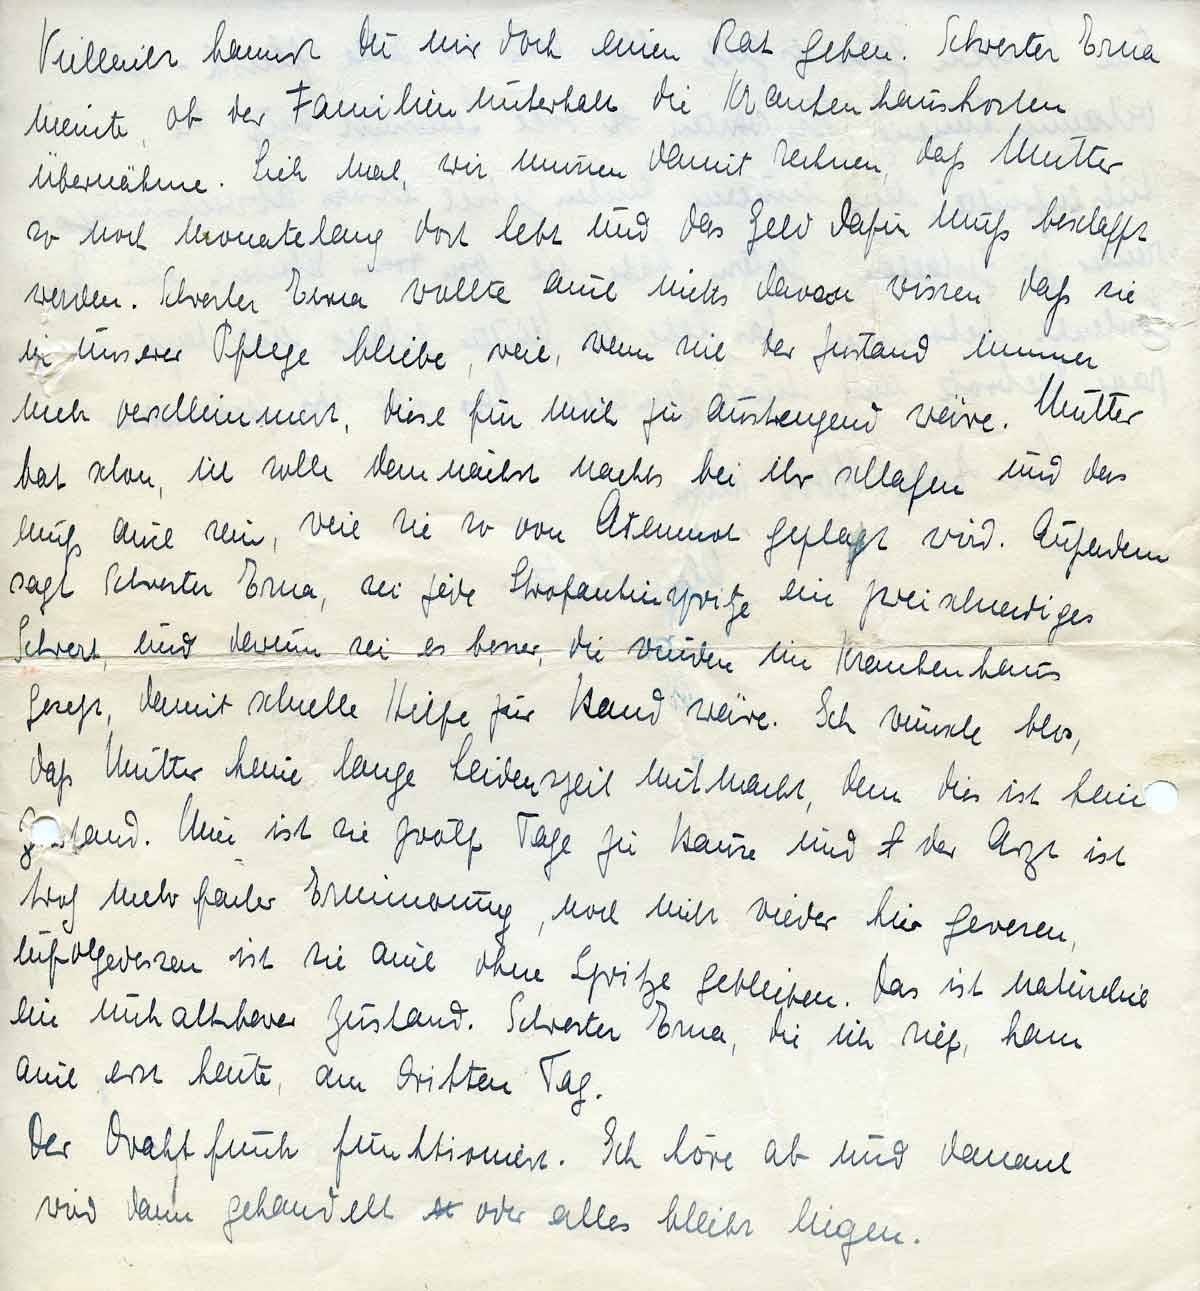 Vielleicht kannst Du mir doch einen Rat geben. Schwester Erna
meinte, ob der Familienunterhalt die Krankenhauskosten
übernähme. Sieh mal, wir müssen damit rechnen, daß Mutter
so noch monatelang dort lebt und das Geld dafür muß beschafft
werden. Schwester Erna wollte auch nichts davon wissen daß sie
in unserer Pflege bliebe, weil, wenn sich der Zustand immer
mehr verschlimmert, diese für mich zu anstrengend wäre. Mutter
bat schon, ich solle demnächst nachts bei ihr schlafen und das
muß auch sein, weil sie so von Atemnot geplagt wird. Außerdem
sagt Schwester Erna, sei jede Strofantinspritze ein zweischneidiges
Schwert, und darum sei es besser, die würden im Krankenhaus
gesetzt, damit schnelle Hilfe zur Hand wäre. Ich wünsche blos,
daß Mutter keine lange Leidenszeit mitmacht, denn dies ist kein
Zustand. Nun ist sie zwölf Tage zu Hause und der Arzt ist
trotz mehrfacher Erinnerung, noch nicht wieder hier gewesen,
infolgedessen ist sie auch ohne Spritze geblieben. Das ist natürlich
ein unhaltbarer Zustand. Schwester Erna, die ich rief, kam
auch erst heute, am dritten Tag.
Der Drahtfunk funktioniert. Ich höre ab und danach
wird dann gehandelt oder alles bleibt liegen.